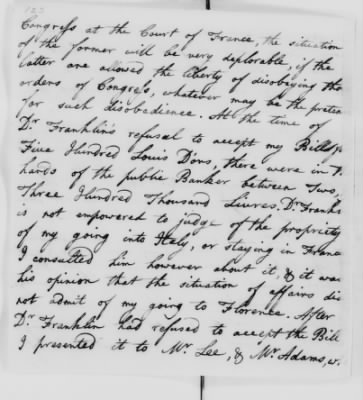 123
Congress at the Court of France, the situation
of the former will be very deplorable, if the
latter are allowed the liberty of disobeying the
orders of Congress, whatever may be the preten
for such disobedience. At the time of
Dr Franklin's refusal to accept my Bill
Five Hundred Louis D'ors, there were in
hands of the public Banker between Two,
Three Hundred Thousand Livres. Dr. Frankl
is not empowered to judge of the propriety
of my going into Italy, or staying in France
I consulted him however about it, & it was
his opinion that the situation of affairs di
not admit of my going to Florence. After
Dr Franklin had refused to accept the Bill
I presented it to Mr Lee, & Mr Adams, w